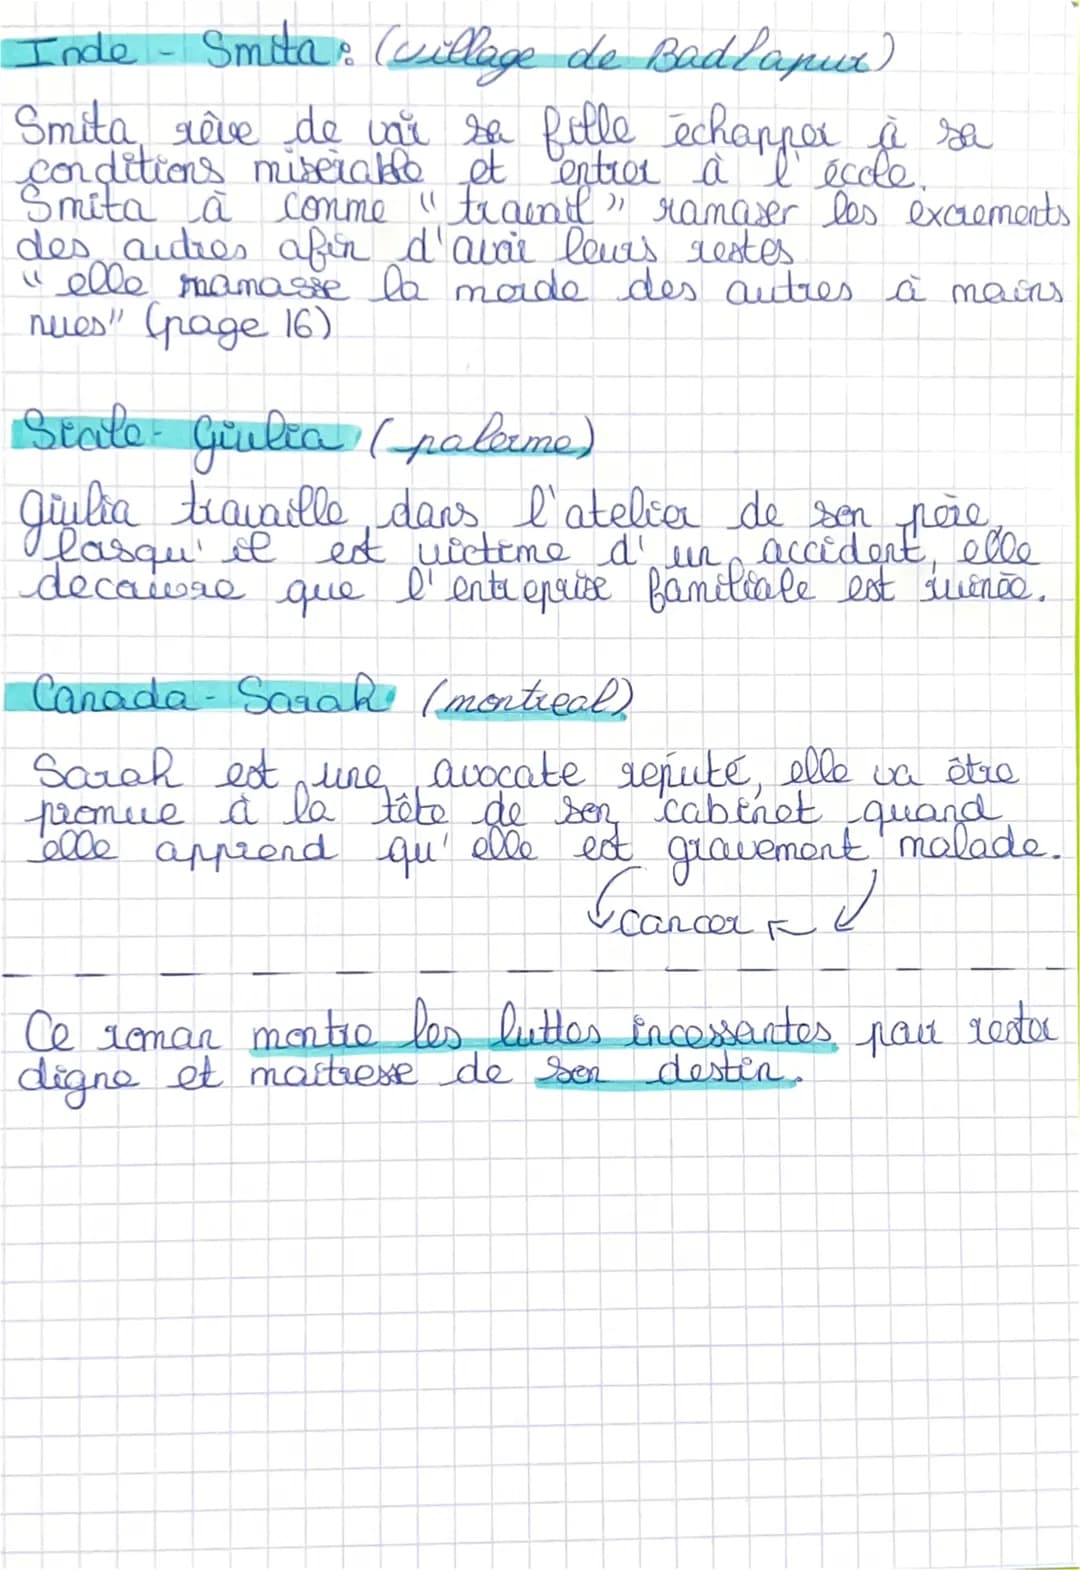 Inde - Smita : (village de Badlapur)
Smita rêve de voir sa fille échapper à sa
conditions misèrable et entrer à l'école.
Smita à comme "travail" ramaser les excrements
des autres afin d'avoir leurs restes
"elle mamasse la merde des autres à mains
nues" (page 16)
Sicile - Giulia (palerme)
Giulia travaille dans l'atelier de son père,
lorsqu'il est victime d'un accident, elle
decouvre que l'entreprise familiale est ruinée.
Canada - Sarah (montreal)
Sarah est une avocate reputé, elle va être
promue à la tête de son cabinet quand
elle apprend qu'elle est gravement malade.
cancer
Ce roman montre les luttes incessantes pour rester
digne et maitresse de son destin.